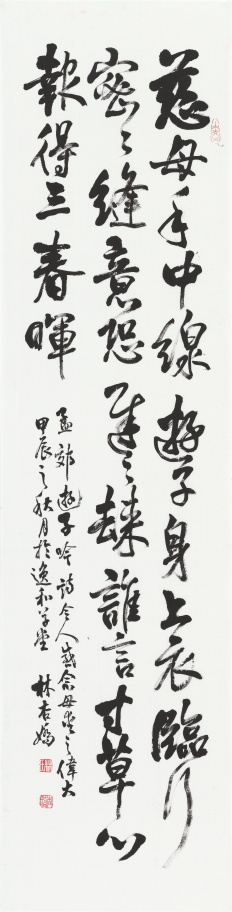 慈母手中線遊子身上衣臨行
密々縫意恐遲々歸誰言寸草心
報得三春暉
孟郊遊子吟詩令人感念母愛之偉大
甲辰之秋月於逸和草堂 林杏嬌